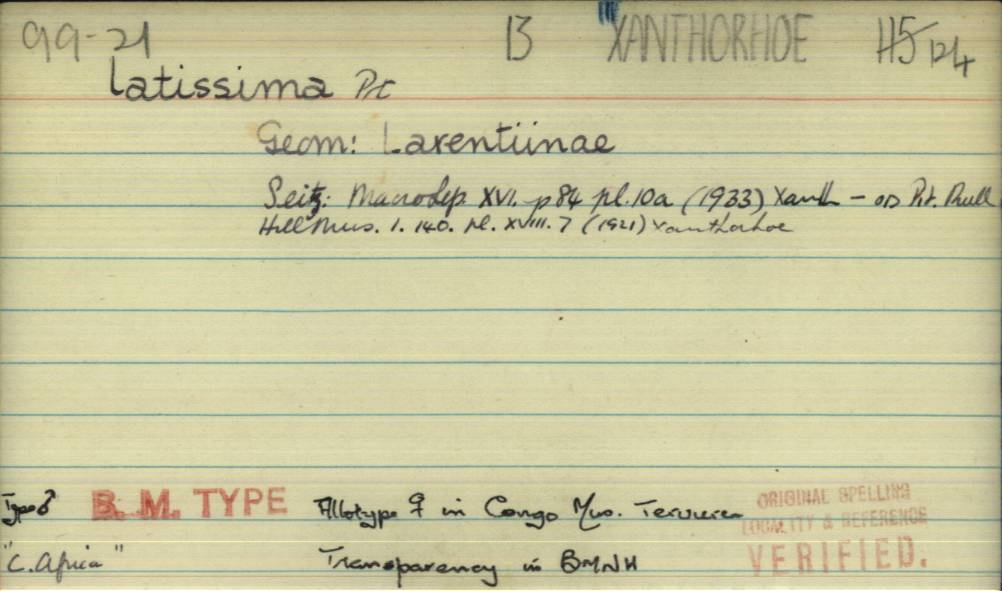 99-21 13 XANTHORHOE H5/124
latissima Prt
Geom: Larentiinae
Seitz: Macrolep. XVI. p84 pl.10a (1933) Xanth - OD Prt. Bull
Hill Mus. 1. 140. Pl. XVIII. 7 (1921) Xanthorhoe
Type ♂ B. M. TYPE Allotype ♀ in Congo Mus. Tervuren
"C. Africa" Transparency in BMNH
ORIGINAL SPELLING
LOCALITY & REFERENCE
VERIFIED.